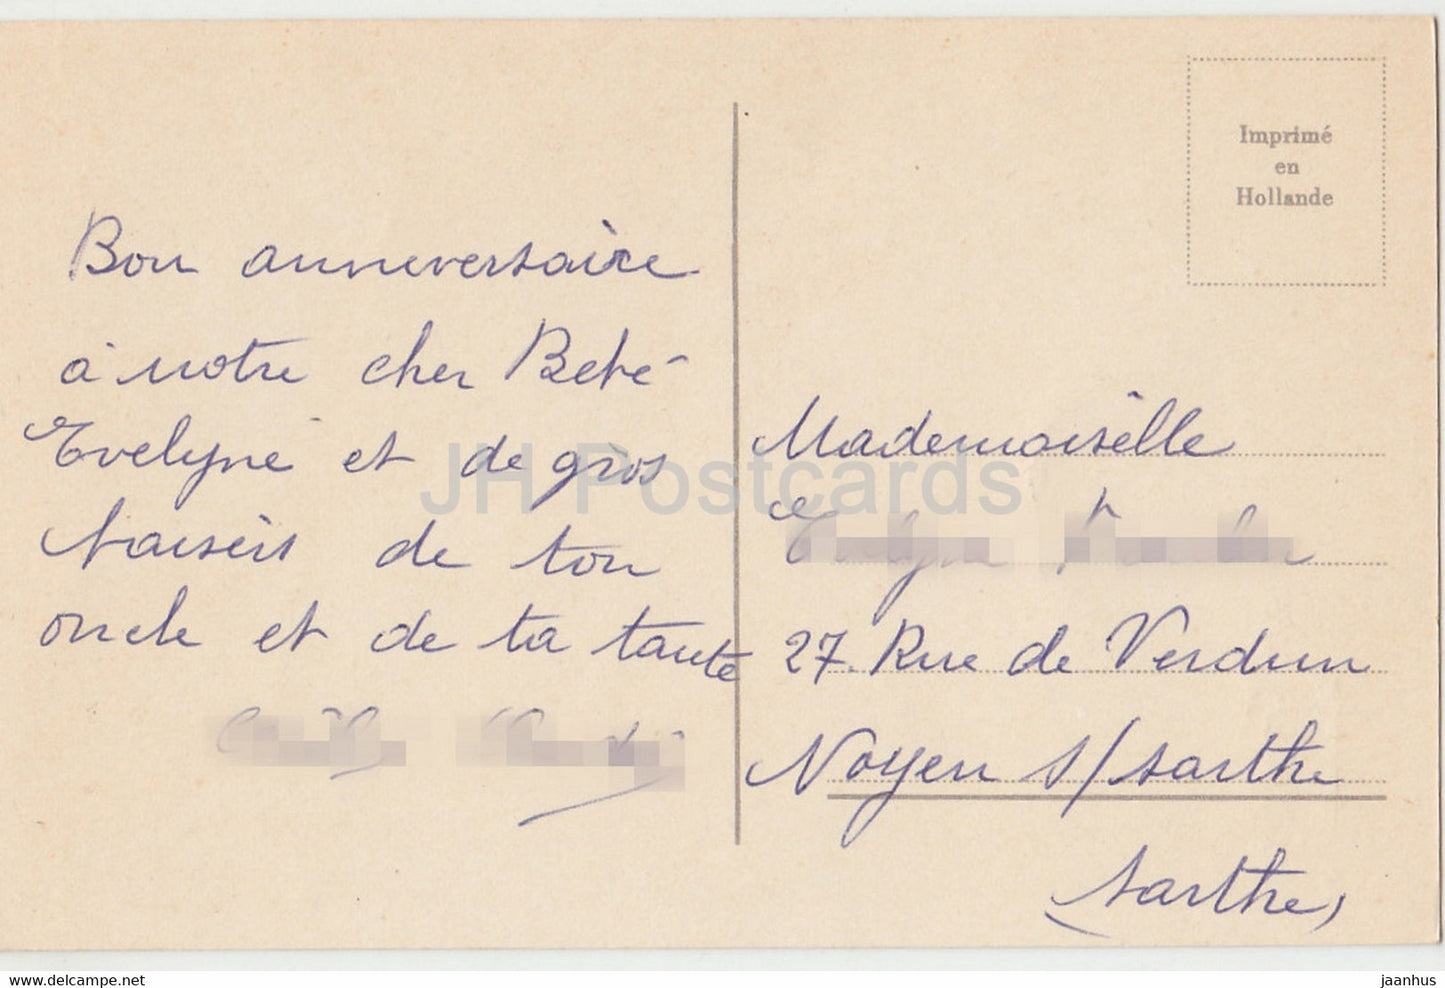 Imprimé
en
Hollande
Bon anniversaire
à notre cher Bébé
Evelyne et de gros
baisers de ton
oncle et de ta tante
Mademoiselle
27. Rue de Verdun
Noyen s/sarthe
(sarthe)
JH Postcards
www.delcampe.net
jaanhus